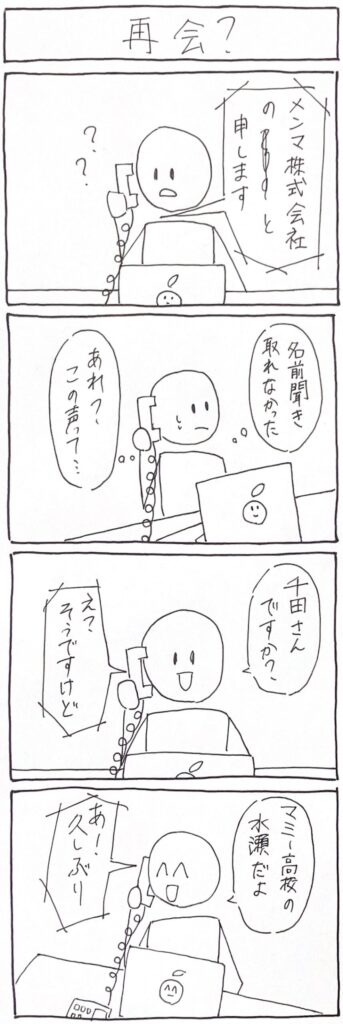 再会?
メンマ株式会社
の と
申します
?
?
名前聞き
取れなかった
あれ?
この声って…
千田さん
ですか?
え?
そうですけど
マミー高校の
水瀬だよ
あー!
久しぶり